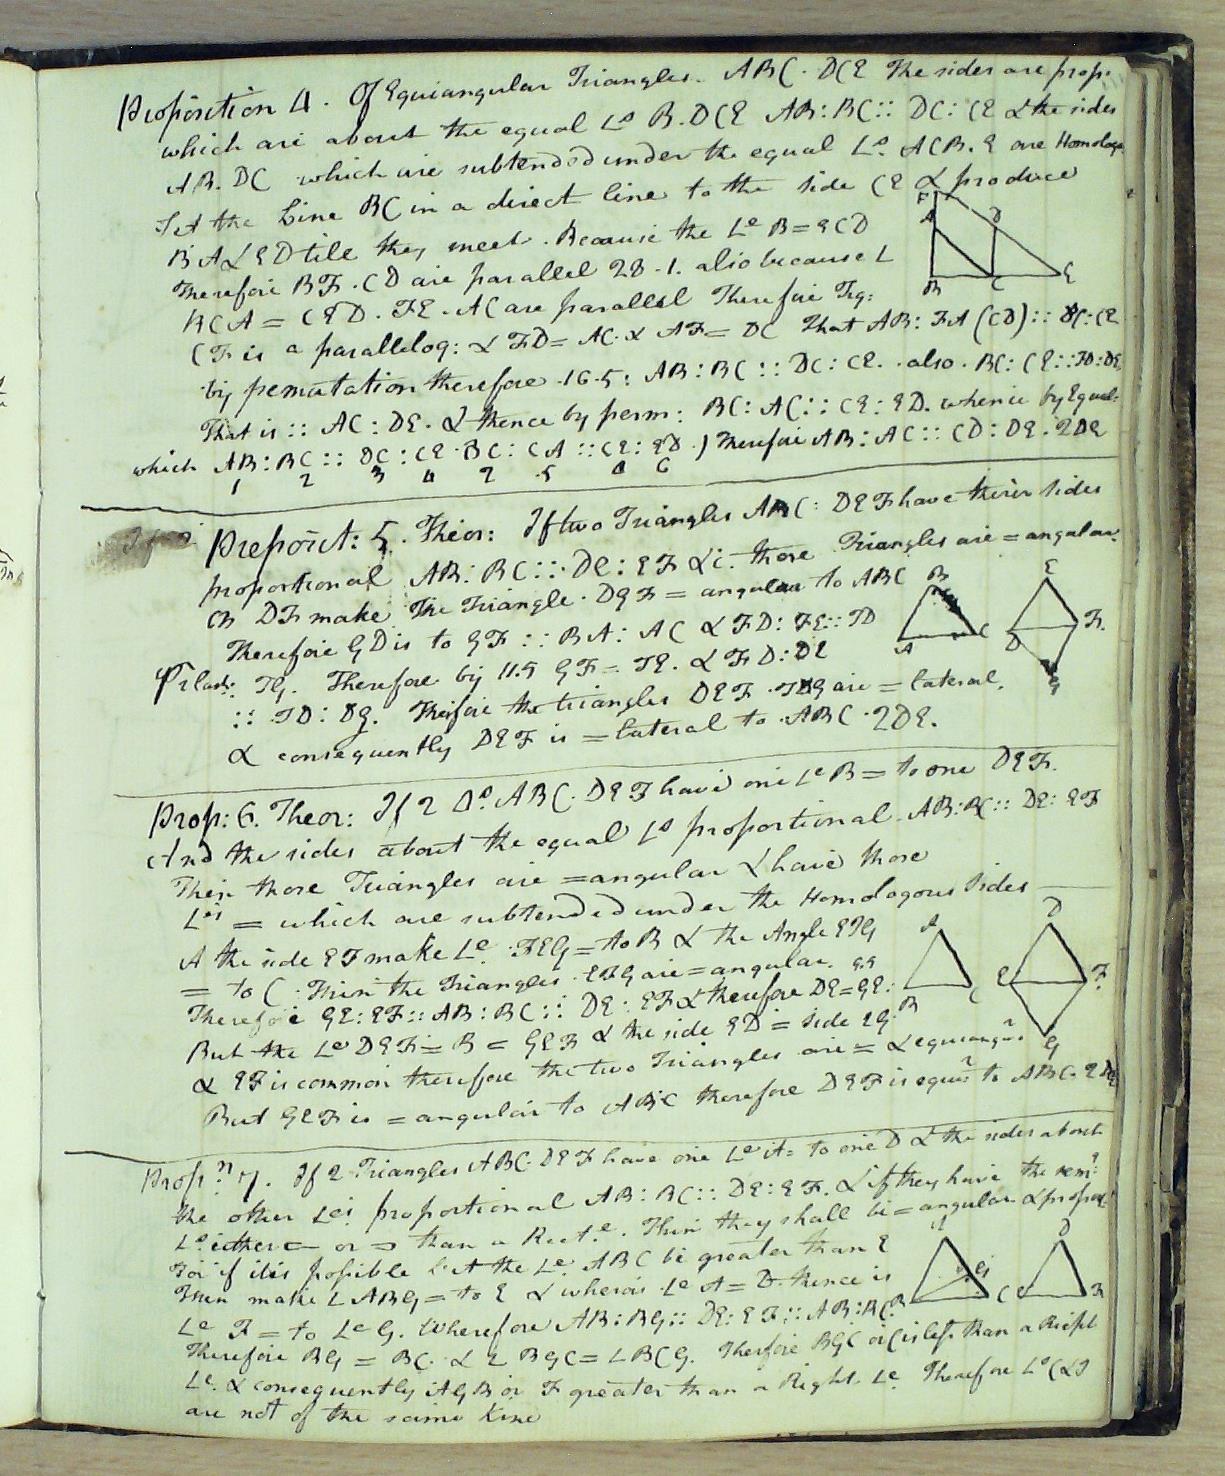 Proposition 4. Of Equiangular Triangles. ABC. DCE The sides are prop:
which are about the equal Ls B. DCE AB: BC:: DC: CE & the sides
AB. DC which are subtended under the equal Ls. ACB. E are Homolog
Set the Line BC in a direct line to the side CE & produce
BA & ED tile they meet. Because the Le B = ECD
Therefore BF. CD are parallel 28.1. also because L
BCA = CED. FE. AC are parallel Therefore Fig:
CF is a parallelog: & FD = AC. & AF = DC That AB: FA (CD):: BC: CE
by pemutation therefore 16.5: AB: BC:: DC: CE. also. BC: CE:: FD: DE
That is:: AC: DE. & thence by perm: BC: AC:: CE: ED. whence by Equal:
which AB: BC:: DC: CE. BC: CA:: CE: ED.) Therefore AB: AC:: CD: DE. 2DE
1 2 3 4 2 5 4 6
F A D B C E
Preposit: 5. Theor: If two Triangles ABC: DEF have their sides
proportional AB: BC::. DE: EF &c: those Triangles are = angular.
DF make The Triangle. DGF = angular to ABC
Therefore GD is to GF:: BA: AC & FD: FE:: FD
FG. Therefore by 11.5 GF = FE. & FD: DE
:: FD: DG. Theifore the triangles DEF. FDG are = lateral.
& consequently DEF is = lateral to ABC. 2DE.
B A C E D F. G
Prop: 6. Theor: If 2 Δs. ABC. DEF have one Le B = to one DEF.
And the sides about the equal Ls proportional. AB: BC:: DE: EF
Then those Triangles are = angular & have those
Les = which are subtended under the Homologous Sides
A the side EF make Le FEG = to B & the Angle EFG
= to C. Then the Triangles. EFG are = angular.
Therefore GE: EF:: AB: BC:: DE: EF & therefore DE = GE:
But the Le DEF = B = GEF & the side ED = side EG
& EF is common therefore the two Triangles are = & equiangr
But GEF is = angular to ABC therefore DEF is equir to ABC. 2DE
A B C D E F. G
Propn: 7. If 2 Triangles ABC. DEF have one Le A = to one D & the sides about
the other Les proportional AB: BC:: DE: EF. & if they have the remr:
Le either or than a Rect.e. Then they shall be = angular & propor:
For if it is possible Let the Le. ABC be greater than E
Then make L ABG = to E & wheras Le A = D. thence is
Le F = to Le G. Wherefore AB: BG:: DE: EF:: AB: BC.
Therefore BG = BC. & L BGC = LBCG. Therefore BGC or C is less than a Right
Le. & consequently AGB or F greater than a Right Le Therefore Ls C & F
are not of the same Kine
A G B C D E F